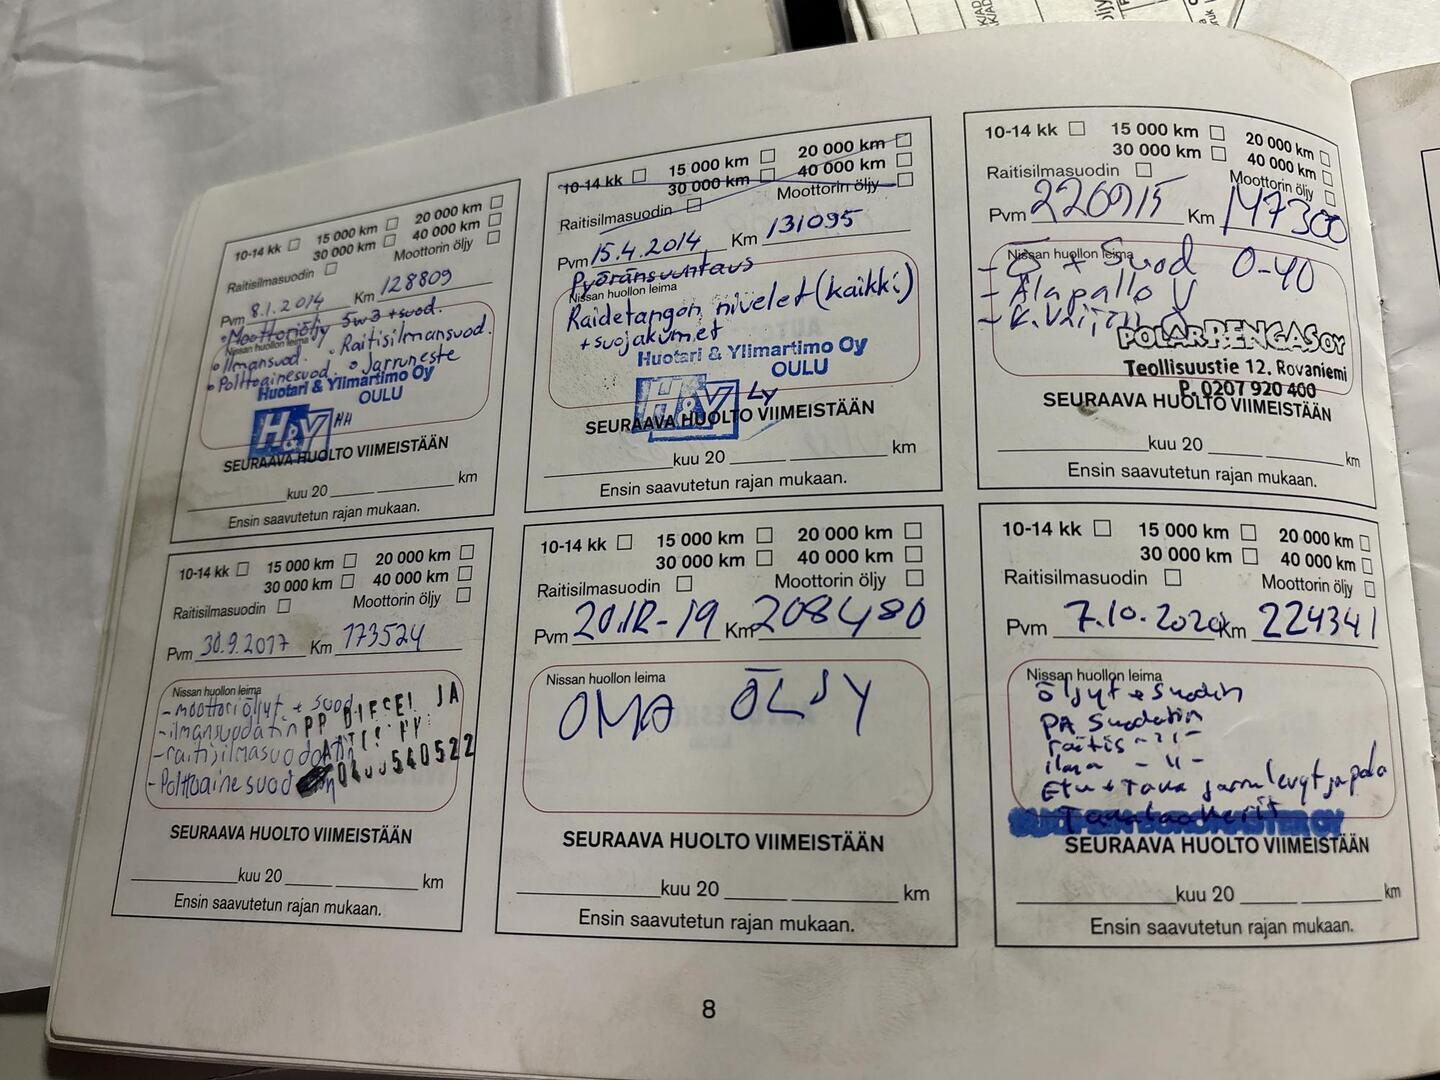 10-14 kk 15 000 km 20 000 km
30 000 km 40 000 km
Raitisilmasuodin Moottorin öljy
Pvm 8.1.2014 Km 128809
• Moottoriöljy 5w3 + suod.
Nissan huollon leima
• Ilmansuod. • Raitisilmansuod.
• Polttoainesuod. • Jarruneste
Huotari & Ylimartimo Oy
OULU
H&Y
SEURAAVA HUOLTO VIIMEISTÄÄN
kuu 20 km
Ensin saavutetun rajan mukaan.
10-14 kk 15 000 km 20 000 km
30 000 km 40 000 km
Raitisilmasuodin Moottorin öljy
Pvm 15.4.2014 Km 131095
Pyöränsuuntaus
Nissan huollon leima
Raidetangon nivelet (kaikki)
+ suojakumet
Huotari & Ylimartimo Oy
OULU
H&Y
SEURAAVA HUOLTO VIIMEISTÄÄN
kuu 20 km
Ensin saavutetun rajan mukaan.
10-14 kk 15 000 km 20 000 km
30 000 km 40 000 km
Raitisilmasuodin Moottorin öljy
Pvm 220915 Km 147300
Nissan huollon leima
- Ö + Suod 0-40
- Alapallo V
POLARRENGAS OY
Teollisuustie 12. Rovaniemi
P. 0207 920 400
SEURAAVA HUOLTO VIIMEISTÄÄN
kuu 20 km
Ensin saavutetun rajan mukaan.
10-14 kk 15 000 km 20 000 km
30 000 km 40 000 km
Raitisilmasuodin Moottorin öljy
Pvm 30.9.2017 Km 173524
Nissan huollon leima
- moottoriöljyt + suod
- ilmansuodatin
- raitisilmasuodatin
- Polttoainesuod
PP DIESEL JA
0400540522
SEURAAVA HUOLTO VIIMEISTÄÄN
kuu 20 km
Ensin saavutetun rajan mukaan.
10-14 kk 15 000 km 20 000 km
30 000 km 40 000 km
Raitisilmasuodin Moottorin öljy
Pvm 20.12-19 Km 208480
Nissan huollon leima
OMA ÖLJY
SEURAAVA HUOLTO VIIMEISTÄÄN
kuu 20 km
Ensin saavutetun rajan mukaan.
10-14 kk 15 000 km 20 000 km
30 000 km 40 000 km
Raitisilmasuodin Moottorin öljy
Pvm 7.10.2020 Km 224341
Nissan huollon leima
öljyt + suodin
PA suodatin
raitis -"-
ilma -"-
Etu + Taka jarrulevyt ja pala
SEURAAVA HUOLTO VIIMEISTÄÄN
kuu 20 km
Ensin saavutetun rajan mukaan.
8